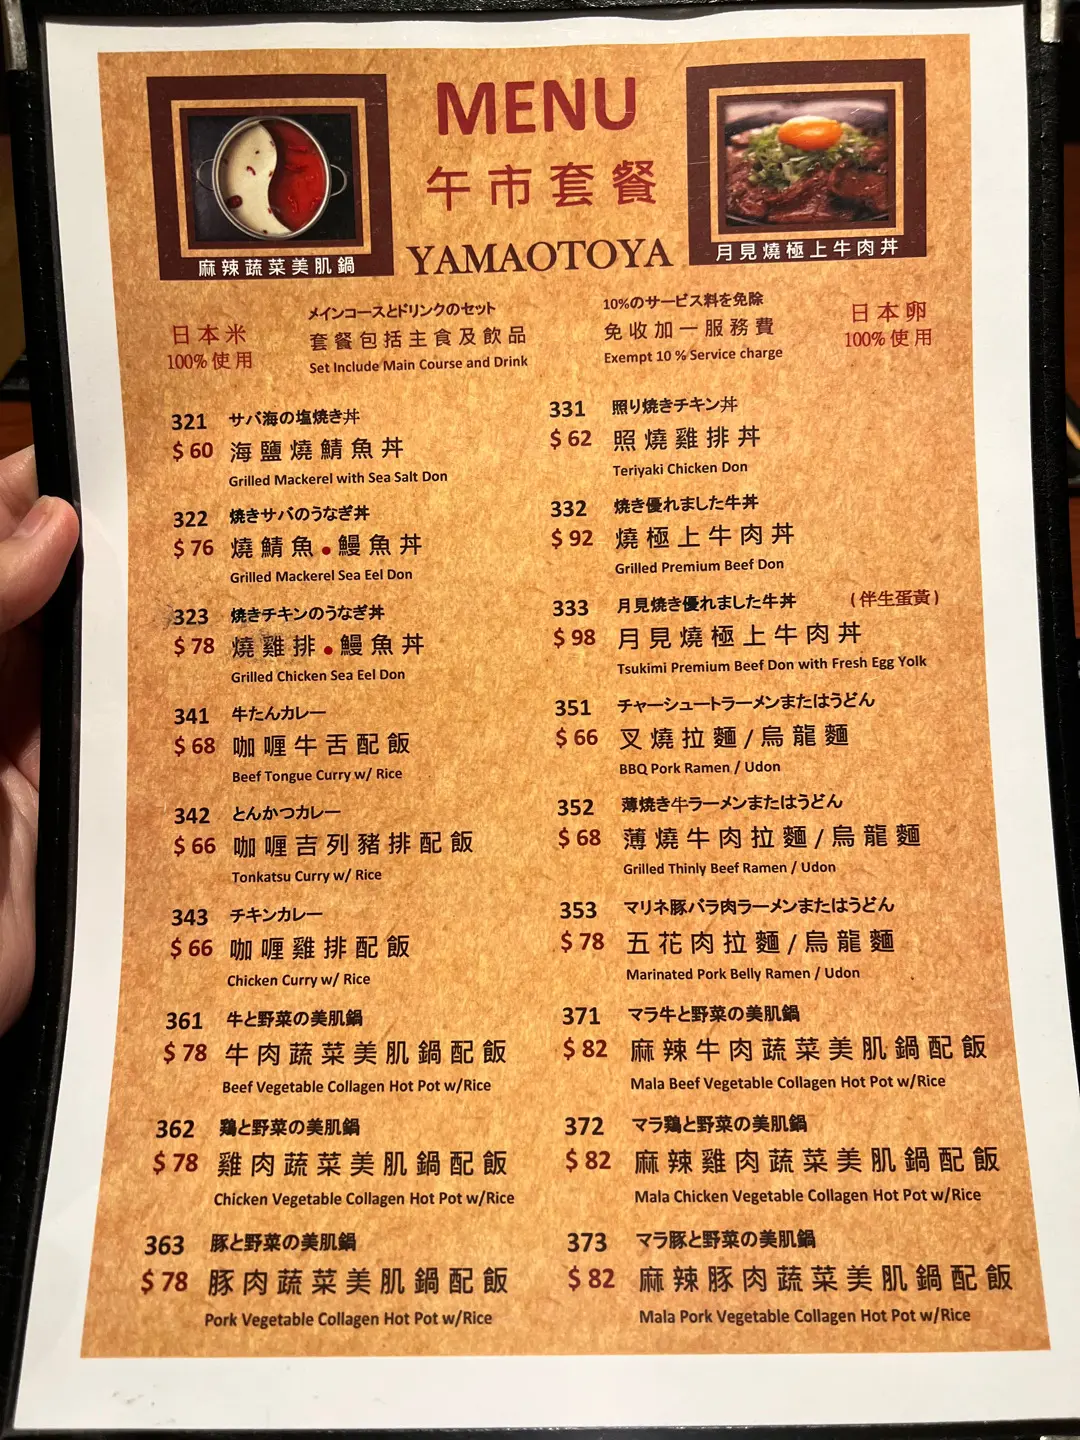 MENU
午市套餐
YAMAOTOYA
麻辣蔬菜美肌鍋
月見燒極上牛肉丼
日本米
100%使用
メインコースとドリンクのセット
套餐包括主食及飲品
Set Include Main Course and Drink
10%のサービス料を免除
免收加一服務費
Exempt 10 % Service charge
日本卵
100%使用
321 サバ海の塩焼き丼
$ 60 海鹽燒鯖魚丼
Grilled Mackerel with Sea Salt Don
322 焼きサバのうなぎ丼
$ 76 燒鯖魚•鰻魚丼
Grilled Mackerel Sea Eel Don
323 焼きチキンのうなぎ丼
$ 78 燒雞排•鰻魚丼
Grilled Chicken Sea Eel Don
341 牛たんカレー
$ 68 咖喱牛舌配飯
Beef Tongue Curry w/ Rice
342 とんかつカレー
$ 66 咖喱吉列豬排配飯
Tonkatsu Curry w/ Rice
343 チキンカレー
$ 66 咖喱雞排配飯
Chicken Curry w/ Rice
361 牛と野菜の美肌鍋
$ 78 牛肉蔬菜美肌鍋配飯
Beef Vegetable Collagen Hot Pot w/Rice
362 鶏と野菜の美肌鍋
$ 78 雞肉蔬菜美肌鍋配飯
Chicken Vegetable Collagen Hot Pot w/Rice
363 豚と野菜の美肌鍋
$ 78 豚肉蔬菜美肌鍋配飯
Pork Vegetable Collagen Hot Pot w/Rice
331 照り焼きチキン丼
$ 62 照燒雞排丼
Teriyaki Chicken Don
332 焼き優れました牛丼
$ 92 燒極上牛肉丼
Grilled Premium Beef Don
333 月見焼き優れました牛丼 (伴生蛋黃)
$ 98 月見燒極上牛肉丼
Tsukimi Premium Beef Don with Fresh Egg Yolk
351 チャーシュートラーメンまたはうどん
$ 66 叉燒拉麵/烏龍麵
BBQ Pork Ramen / Udon
352 薄焼き牛ラーメンまたはうどん
$ 68 薄燒牛肉拉麵/烏龍麵
Grilled Thinly Beef Ramen / Udon
353 マリネ豚バラ肉ラーメンまたはうどん
$ 78 五花肉拉麵/烏龍麵
Marinated Pork Belly Ramen / Udon
371 マラ牛と野菜の美肌鍋
$ 82 麻辣牛肉蔬菜美肌鍋配飯
Mala Beef Vegetable Collagen Hot Pot w/Rice
372 マラ鶏と野菜の美肌鍋
$ 82 麻辣雞肉蔬菜美肌鍋配飯
Mala Chicken Vegetable Collagen Hot Pot w/Rice
373 マラ豚と野菜の美肌鍋
$ 82 麻辣豚肉蔬菜美肌鍋配飯
Mala Pork Vegetable Collagen Hot Pot w/Rice